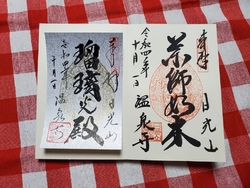 奉拝 日光山
薬師如来
令和四年
十月一日 温泉寺
奉拝 日光山
瑠璃光殿
令和四年
十月一日 温泉寺